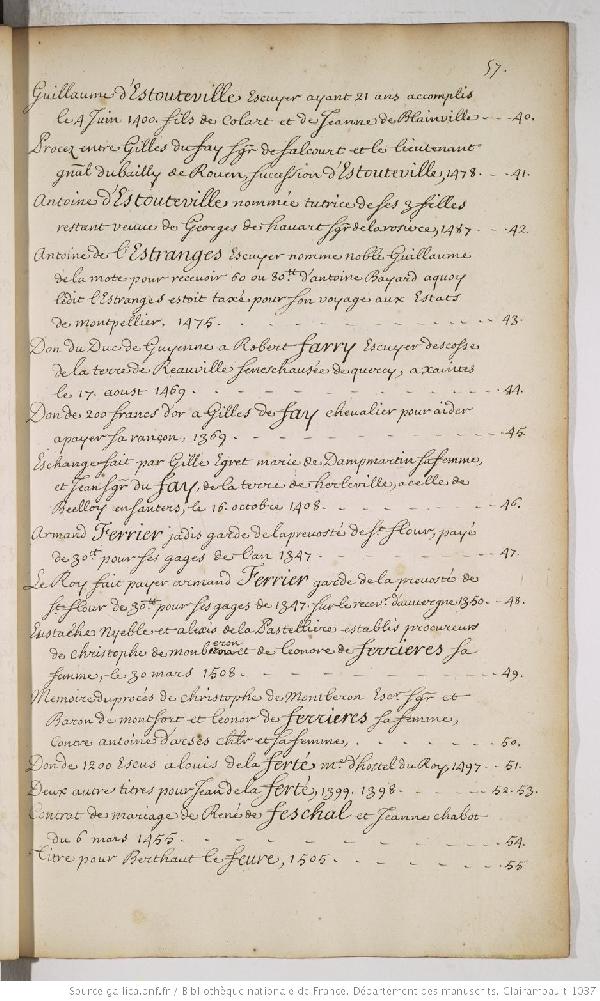 57.
Guillaume d'Estouteville Escuyer ayant 21 ans accomplis
le 4 Juin 1400. fils de Colart et de Jeanne de Blainville - - - 40.
Procez entre Gilles du fay sgr de falcourt et le lieutenant
gnãl du bailly de Rouen, succession d'Estouteville, 1478. - - 41.
Antoine d'Estouteville nommée tutrice de ses 3 filles
restant veuve de Georges de havart sgr de la rosiere, 1487. - - 42.
Antoine de l'Estranges Escuyer nomme noble Guillaume
de la mote pour recevoir 60 ou 80tt d'antoine Bayard aquoy
ledit l'Estranges estoit taxé pour son voyage aux Estats
de montpellier. 1475. - - - - - - - - 43.
Don du Duc de Guyenne a Robert farry Escuyer descosse
de la terre de Reauville seneschaussée de quercy, a xaintes
le 17. aoust 1469. - - - - - - - - 44.
Don de 200 francs d'or a Gilles de fay chevalier pour aider
a payer sa rançon, 1369. - - - - - - - 45.
Eschange fait par Gille Egret marie de Dampmartin sa femme,
et Jean sgr du fay, de la terre de herleville, a celle de
Belloy en santers, le 16. octobre 1408. - - - - - 46.
Armand Ferrier jadis garde de la prevosté de St. flour, payé
de 30tt pour ses gages de l'an 1347. - - - - - 47.
Le Roy fait payer armand Ferrier garde de la prevosté de
St. flour de 30tt pour ses gages de 1347. sur le recevr. d'auvergne 1350. - 48.
Eustache Nyeble et alexis de la Pastelliere establis procureurs
de Christophe de monberon et de leonore de ferrieres sa
femme, le 30 mars 1508. - - - - - - - 49.
Memoire du procés de christophe de Montberon Escr. sgr et
Baron de montfort et leonor de ferrieres sa femme,
contre antoine d'arses chlr et sa femme, . - - - - - 50.
Don de 1200 Escus a louis de la ferté me. d'hostel du Roy, 1497. - 51.
Deux autre titres pour Jean de la ferté, 1399. 1398. - - - 52. 53.
Contrat de mariage de René de feschal et Jeanne chabot
du 6 mars 1455. - - - - - - - - 54.
Titre pour Berthaut le feure, 1505. - - - - - 55
Source gallica.bnf.fr / Bibliothèque nationale de France. Département des manuscrits. Clairambault 1037